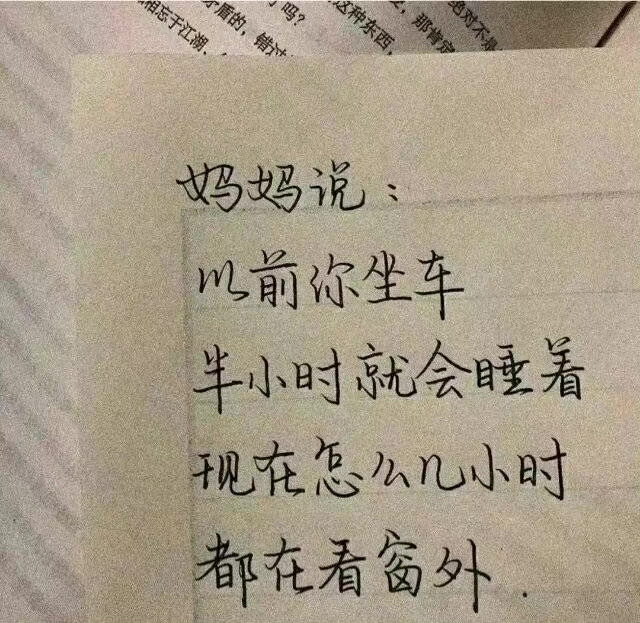 相忘于江湖
矛盾的，错过
了吗？
这种东西，
，那肯定
绝对不是
妈妈说：
以前你坐车
半小时就会睡着
现在怎么几小时
都在看窗外.